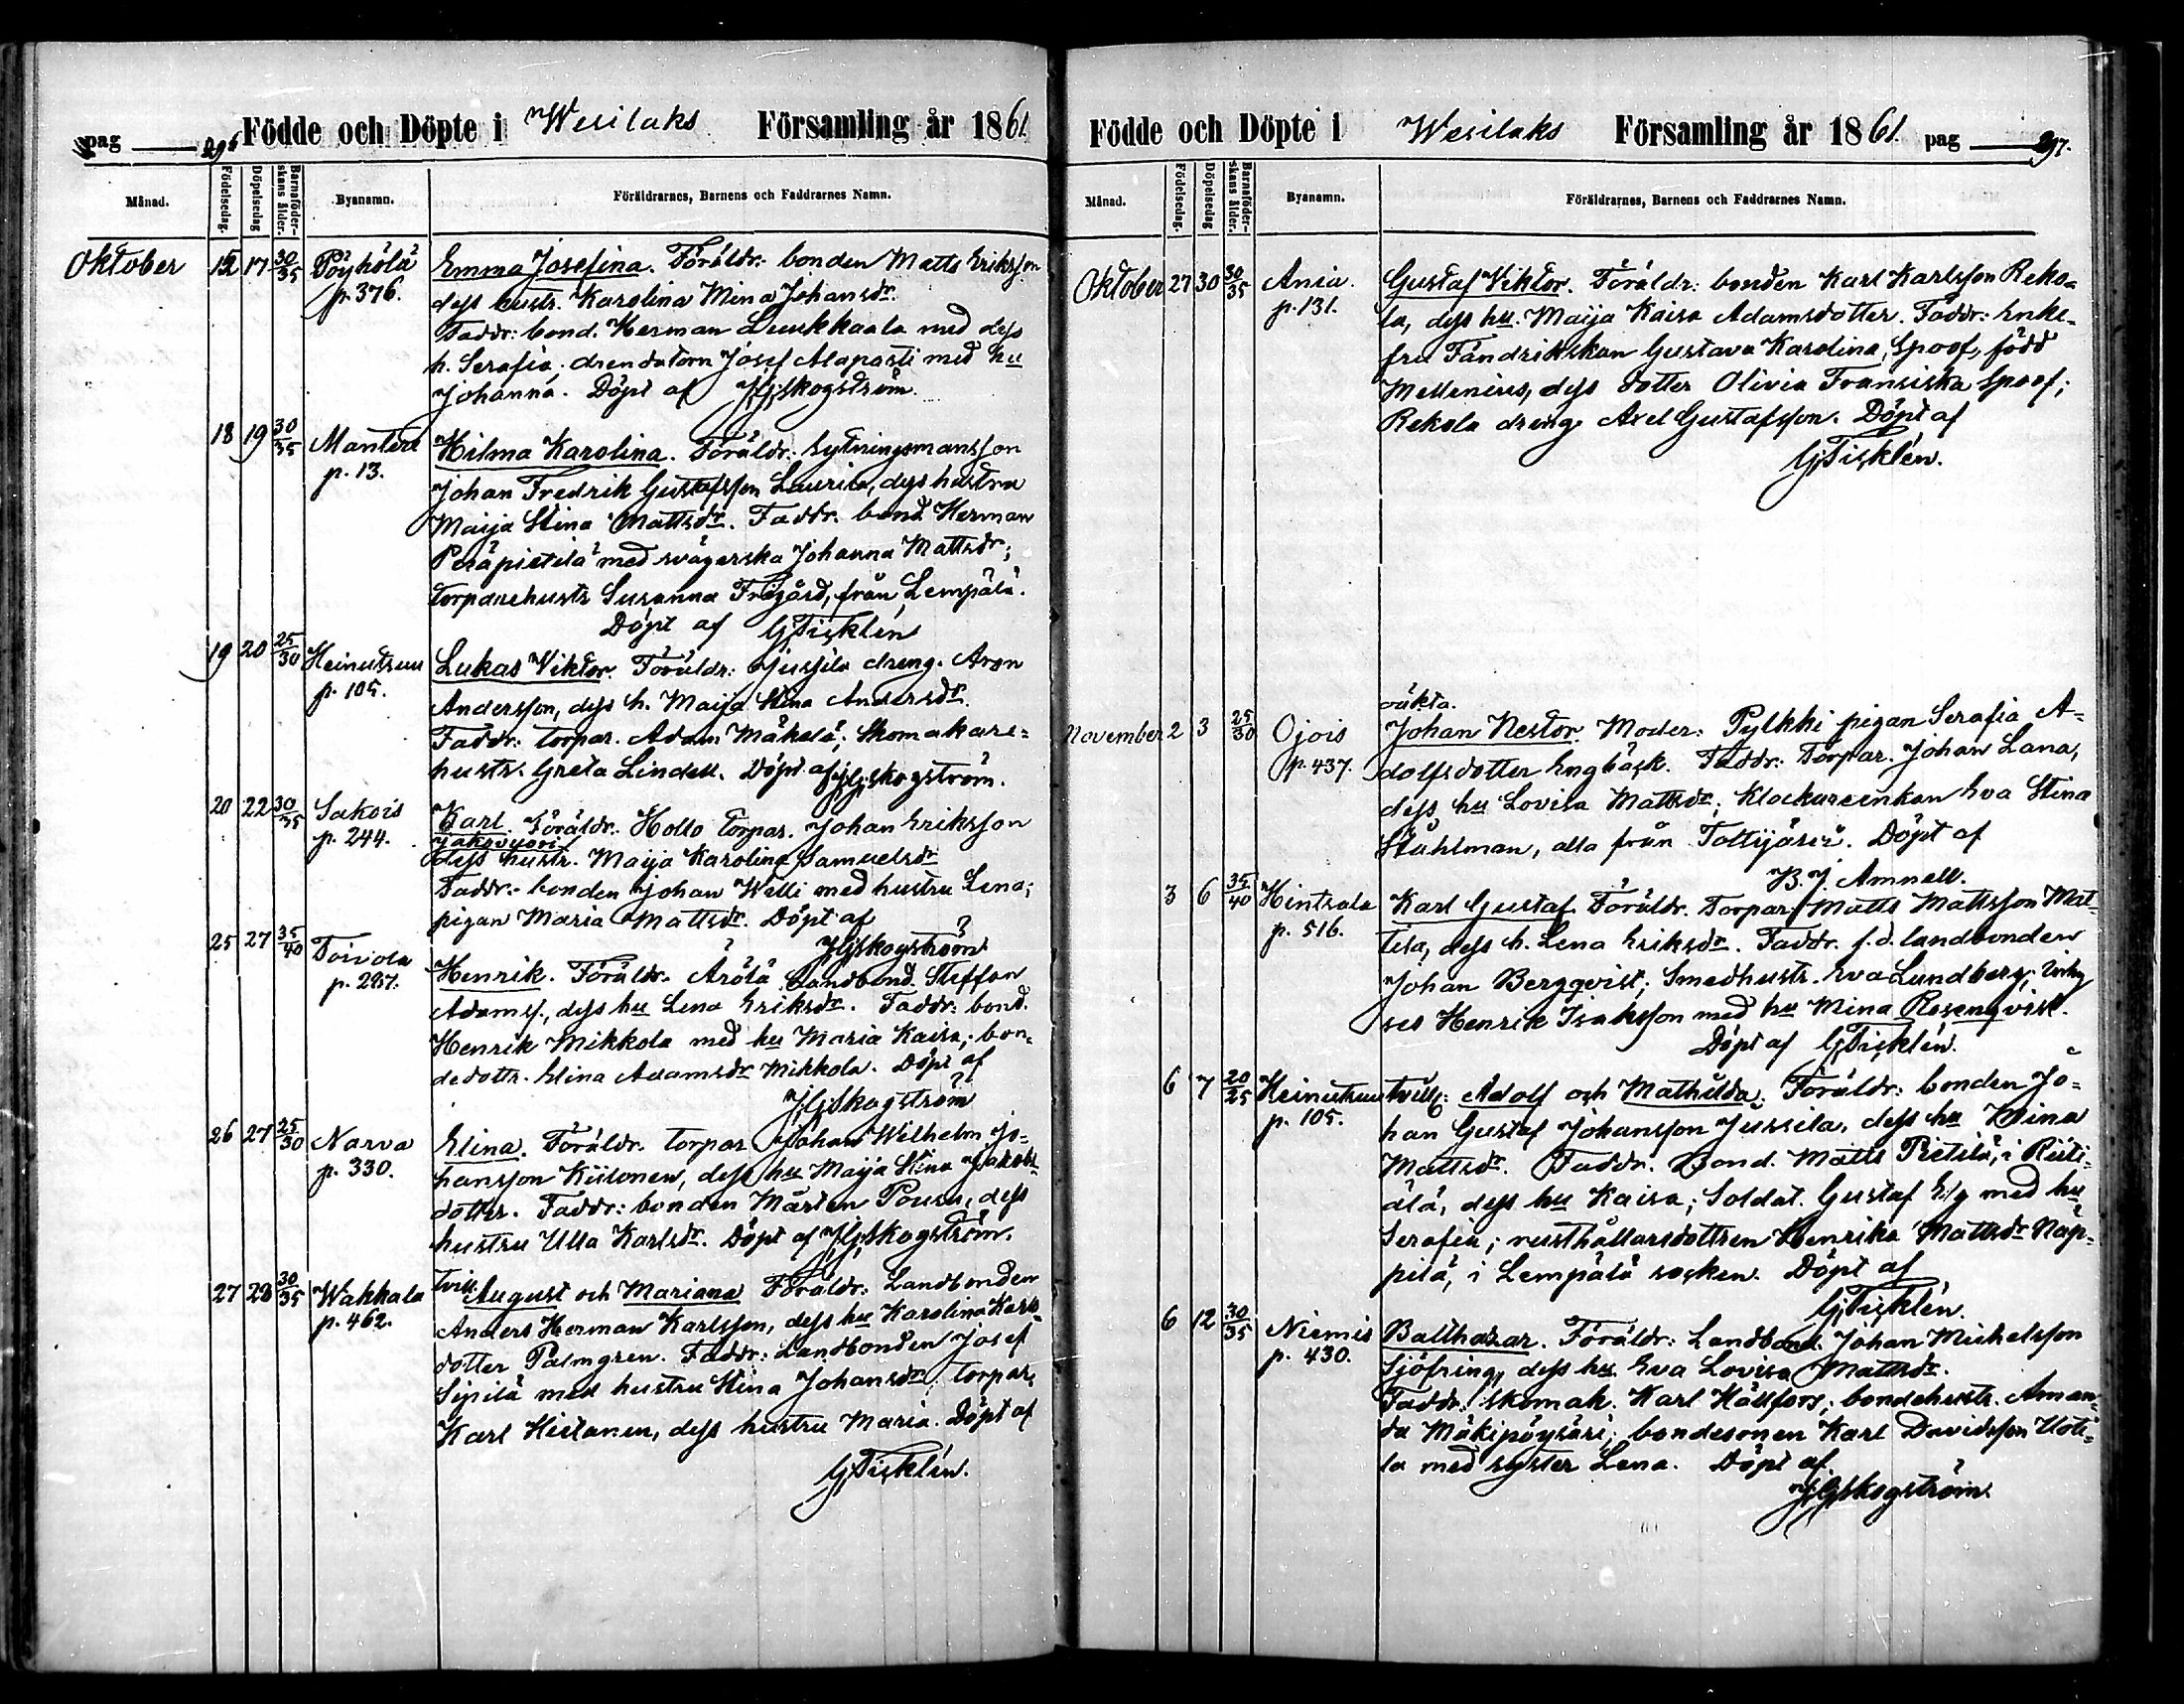 pag 296 Födde och Döpte i Wesilaks Församling år 1861.
Månad. Födelsedag. Döpelsedag Barnaföderskans ålder. Byanamn. Föräldrarnes, Barnens och Faddrarnes Namn.
Oktober 17 30/35 Pöyhölä Emma Josefina. Föräldr: bonden Matts Eriksson
p. 376. dess hustr. Karolina Mina Johansdr.
Faddr: bond. Herman Luukkaala med dess
h. Serafia; arendatorn Josef Alapasti med hu
Johanna. Döpt af JGSkogström.
18 19 30/35 Mantere Hilma Karolina. Föräldr: Sytningsmansson
p. 13. Johan Fredrik Gustafsson Lauria, dess hustru
Maija Stina Mattsdr. Faddr. bond Herman
Peräpietilä med svägerska Johanna Mattsdr;
torparehustr Susanna Frigård, från Lempälä.
Döpt af GTicklén
19 20 25/30 Heinutsuu Lukas Viktor. Föräldr: Jussila dreng. Aron
p. 105. Andersson, dess h. Maija Stina Andersdr.
Faddr: torpar. Adam Mäkelä; Skomakare-
hustr. Greta Lindell. Döpt af JGSkogström.
20 22 30/35 Sakois Karl. Föräldr. Hollo torpar. Johan Eriksson
p. 244. Jaksovuori dess hustr. Maija Karolina Samuelsdr
Faddr:- bonden Johan Welli med hustru Lena;
pigan Maria Mattsdr. Döpt af
JGSkogström
25 27 35/40 Toivola Henrik. Föräldr. Arölä Landbond. Steffan
p. 287. Adamss., dess hu Lena Eriksdr. Faddr: bond.
Henrik Mikkola med hu Maria Kaisa; bon-
dedottr. Elina Adamsdr Mikkola. Döpt af
JGSkogström
26 27 25/30 Narva Elina. Föräldr. torpar Johan Wilhelm Jo-
p. 330. hansson Kiisonen, dess hu Maija Stina Jakobs-
dotter. Faddr: bonden Mårten Pouru, dess
hustru Ulla Karlsdr. Döpt af JGSkogström.
27 28 30/35 Wakkala tvill. August och Mariana Föräldr. Landbonden
p. 462. Anders Herman Karlsson, dess hu Karolina Karls-
dotter Palmgren. Faddr: Landbonden Josef
Sipilä med hustru Stina Johansdr; torpar.
Karl Hietanen, dess hustru Maria. Döpt af
GTicklén.
Födde och Döpte i Wesilaks Församling år 1861. pag 297.
Månad. Födelsedag. Döpelsedag Barnaföderskans ålder. Byanamn. Föräldrarnes, Barnens och Faddrarnes Namn.
Oktober 27 30 30/35 Ania. Gustaf Viktor. Föräldr: bonden Karl Karlsson Reko-
p. 131. la, dess hu. Maija Kaisa Adamsdotter. Faddr: Enke-
fru Fändrikskan Gustava Karolina Spoof, född
Mellenius, dess dotter Olivia Fransiska Spoof;
Rekola dreng Axel Gustafsson. Döpt af
GTicklén.
oäkta.
November 2 3 25/30 Ojois Johan Nestor. Moder: Pylkki pigan Serafia A-
p. 437. dolfsdotter Engbäck. Faddr: Torpar. Johan Lana,
dess hu Lovisa Mattsdr; Klockareenkan Eva Stina
Stählman, alla från Tottijärvi. Döpt af
B. J. Amnell.
3 6 35/40 Hintsala Karl Gustaf. Föräldr. Torpar. Matts Mattsson Mat-
p. 516. tila, dess h. Lena Eriksdr. Faddr. f. d. landbonden
Johan Bergqvist; Smedhustr. Eva Lundberg; Inhy
ses Henrik Isaksson med hu Mina Rosenqvist.
Döpt af GTicklén.
6 7 20/25 Heinutsuu tvill: Adolf och Mathilda. Föräldr: bonden Jo-
p. 105. han Gustaf Johansson Jussila, dess hu Mina
Mattsdr. Faddr. Bond. Matts Pietilä, i Riiti-
älä, dess hu Kaisa; Soldat. Gustaf Elg med hu
Serafia; rusthållarsdottren Henrika Mattsdr Nap-
pilä, i Lempälä socken. Döpt af
GTicklén.
6 12 30/35 Niemis Balthazar. Föräldr: Landbond. Johan Michelsson
p. 430. Sjöfring, dess hu Eva Lovisa Mattsdr.
Faddr: skomak. Karl Hällfors; bondehustr. Aman-
da Mäkipöysäri; bondesonen Karl Davidsson Uoti-
la med syster Lena. Döpt af
JGSkogström.